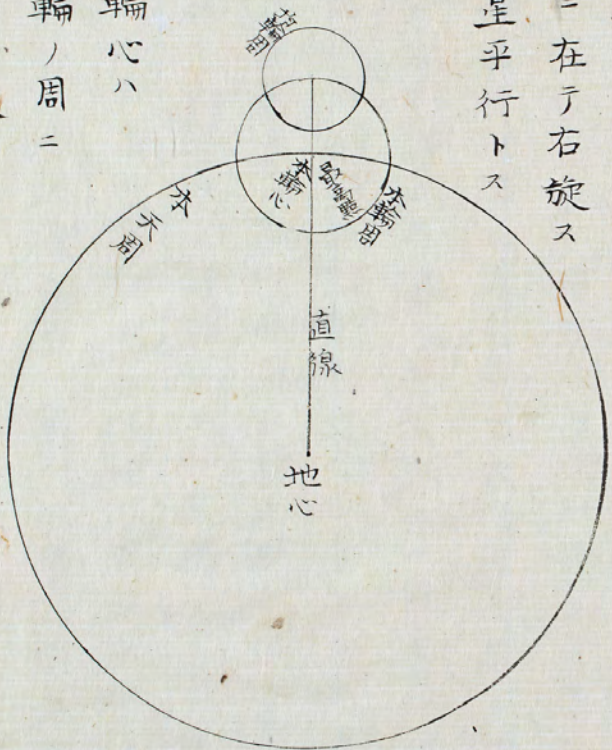 ニ在テ右旋ス
星平行トス
輪周
本輪周
最高點
本輪心
本天周
直線
地心
輪心ハ
輪ノ周ニ